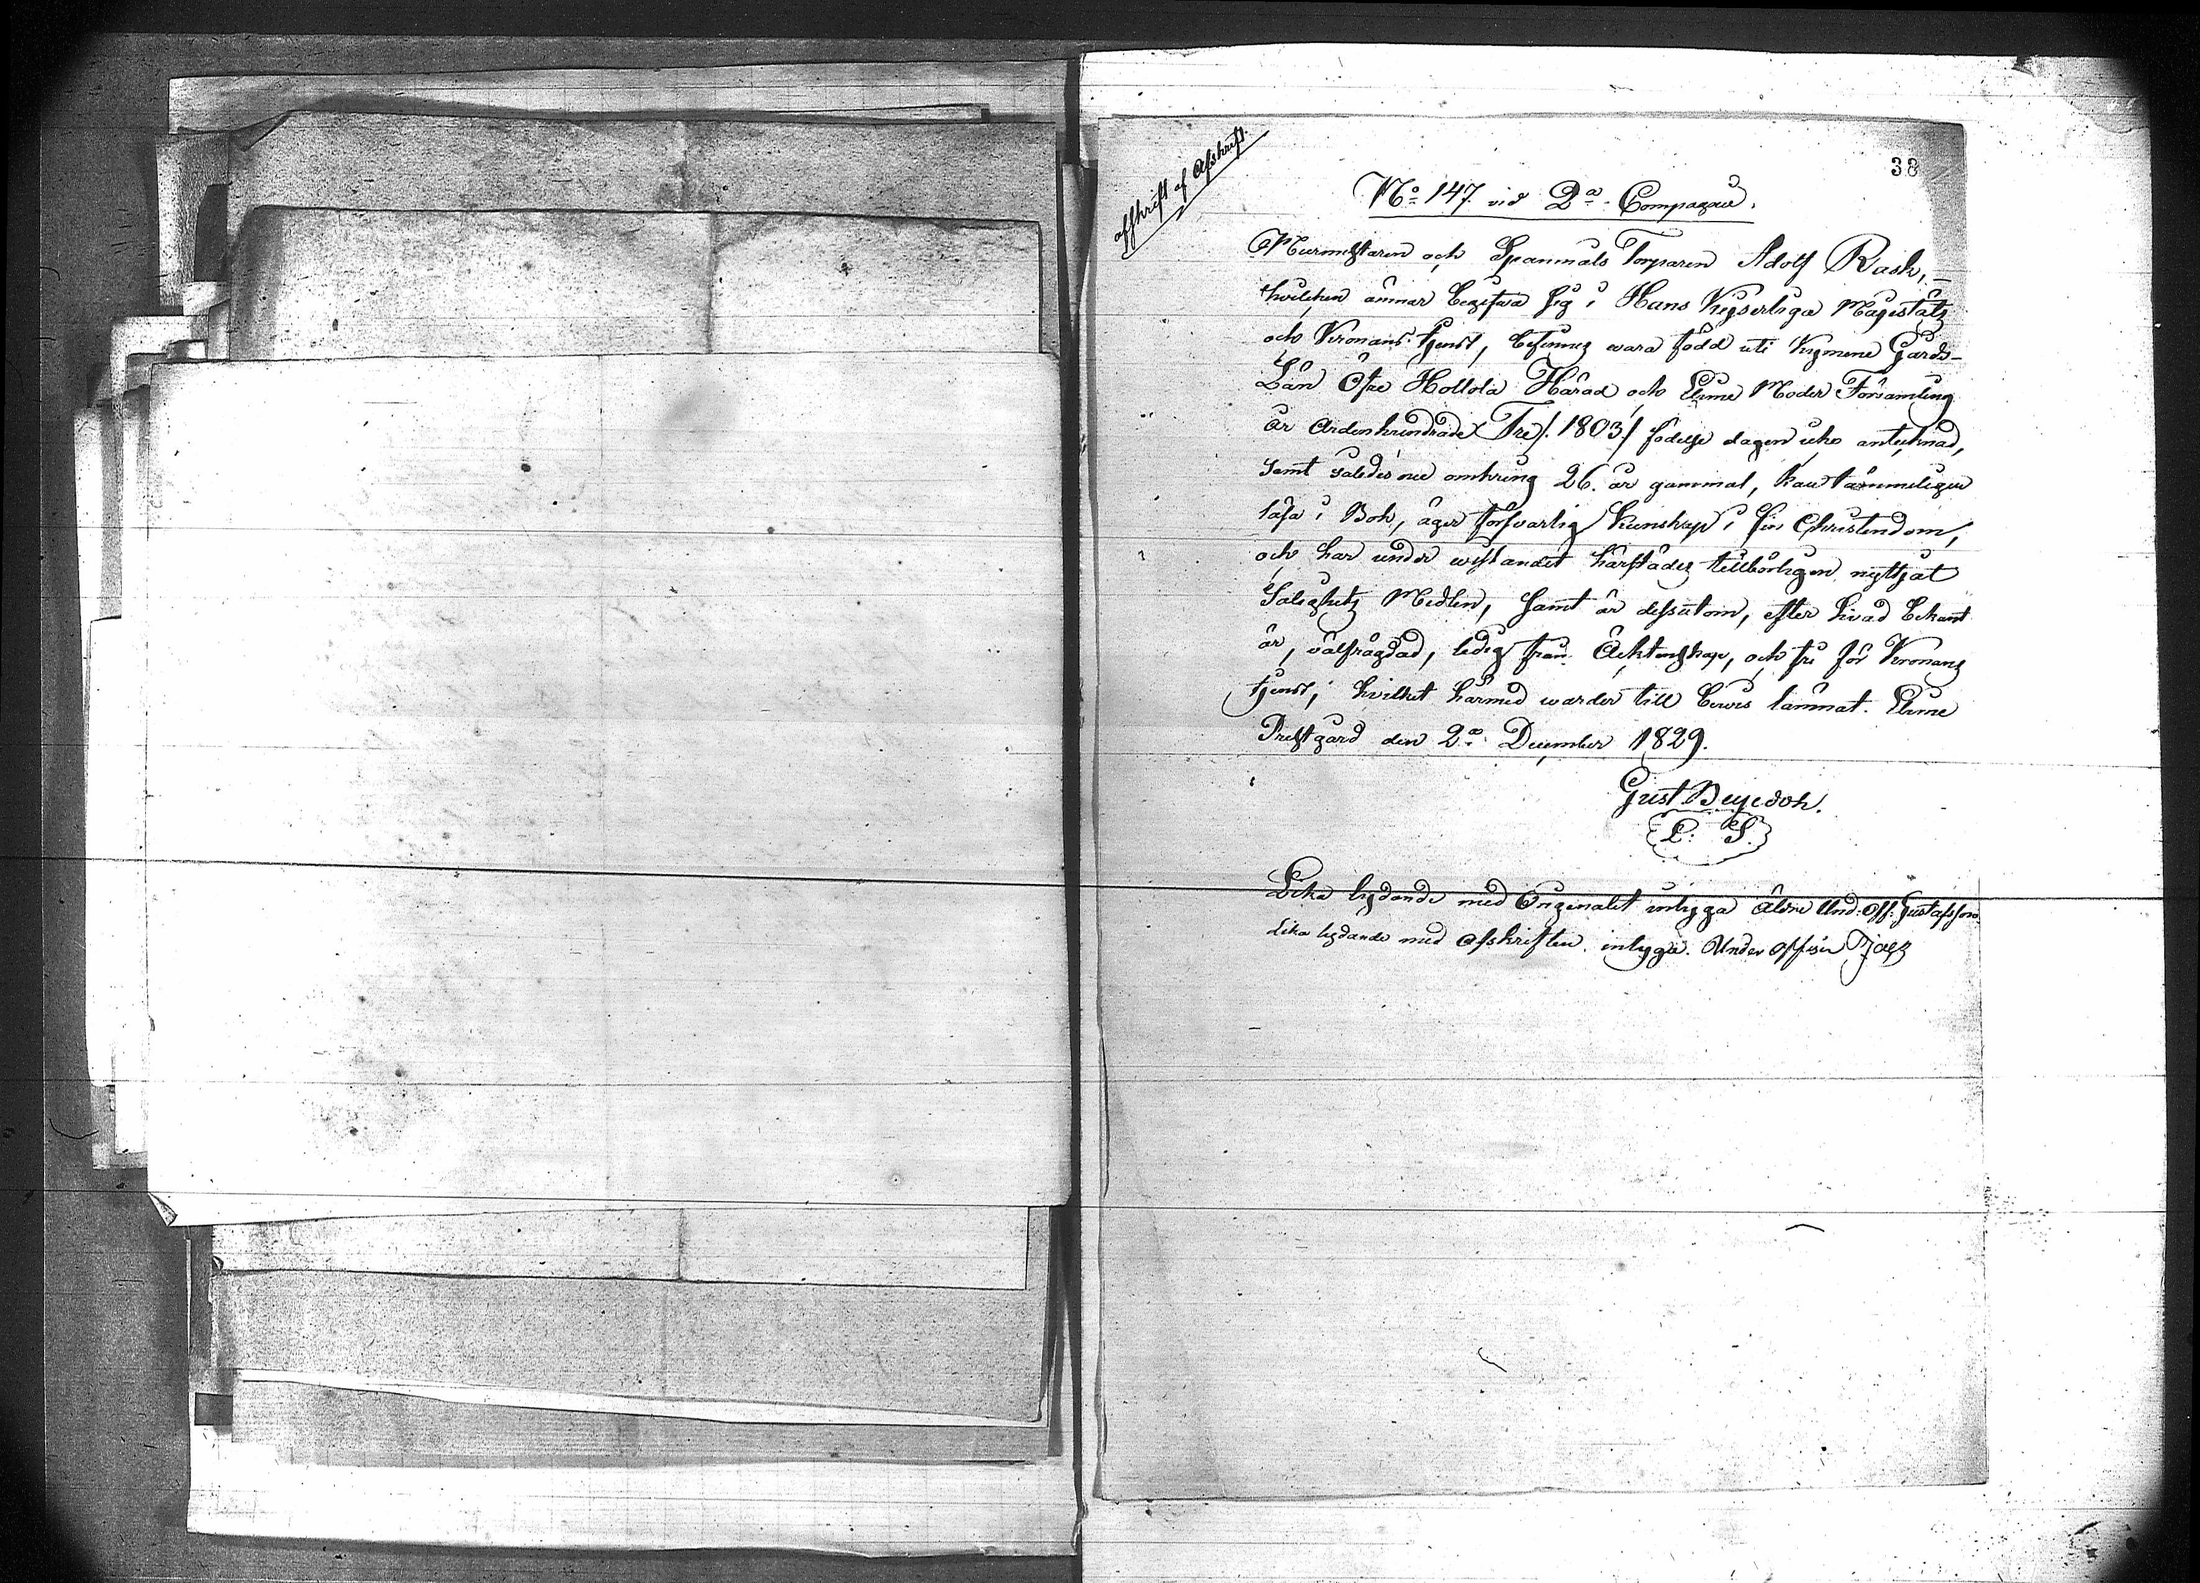 38
afskrift af Afskrift.
No 147 vid 2a Compagnie.
Murmestaren och Spanmåls Torparen Adolf Rask,
hvilken ämnar begifwa sig i Hans Kejserliga Majestäts
och Kronans tjenst, befinnes wara född uti Kymene Gårds-
Län Öfre Hollola Härad och Elime Moder Församling
år Adertonhundrade Tre /:1803:/ födelse dagen icke antecknad,
samt således nu omkring 26. år gammal, kan tämmeligen
läsa i Bok, äger försvarlig kunskap i sin Christendom,
och har under wistandet härstädes tillbörligen nyttjat
Salighets Medlen, samt är dessutom, efter hvad bekant
är, välfrägdad, ledig från Äcktenskap, och fri för Kronans
tjenst; hvilket härmed warder till bewis lämnat. Elime
Prestgård den 2a December 1829.
Gust.
L. S.
Lika lydande med Originalet intyga Äldre Und: Off: Gustafsson.
Lika lydande med afskriften. intygar. Under officer